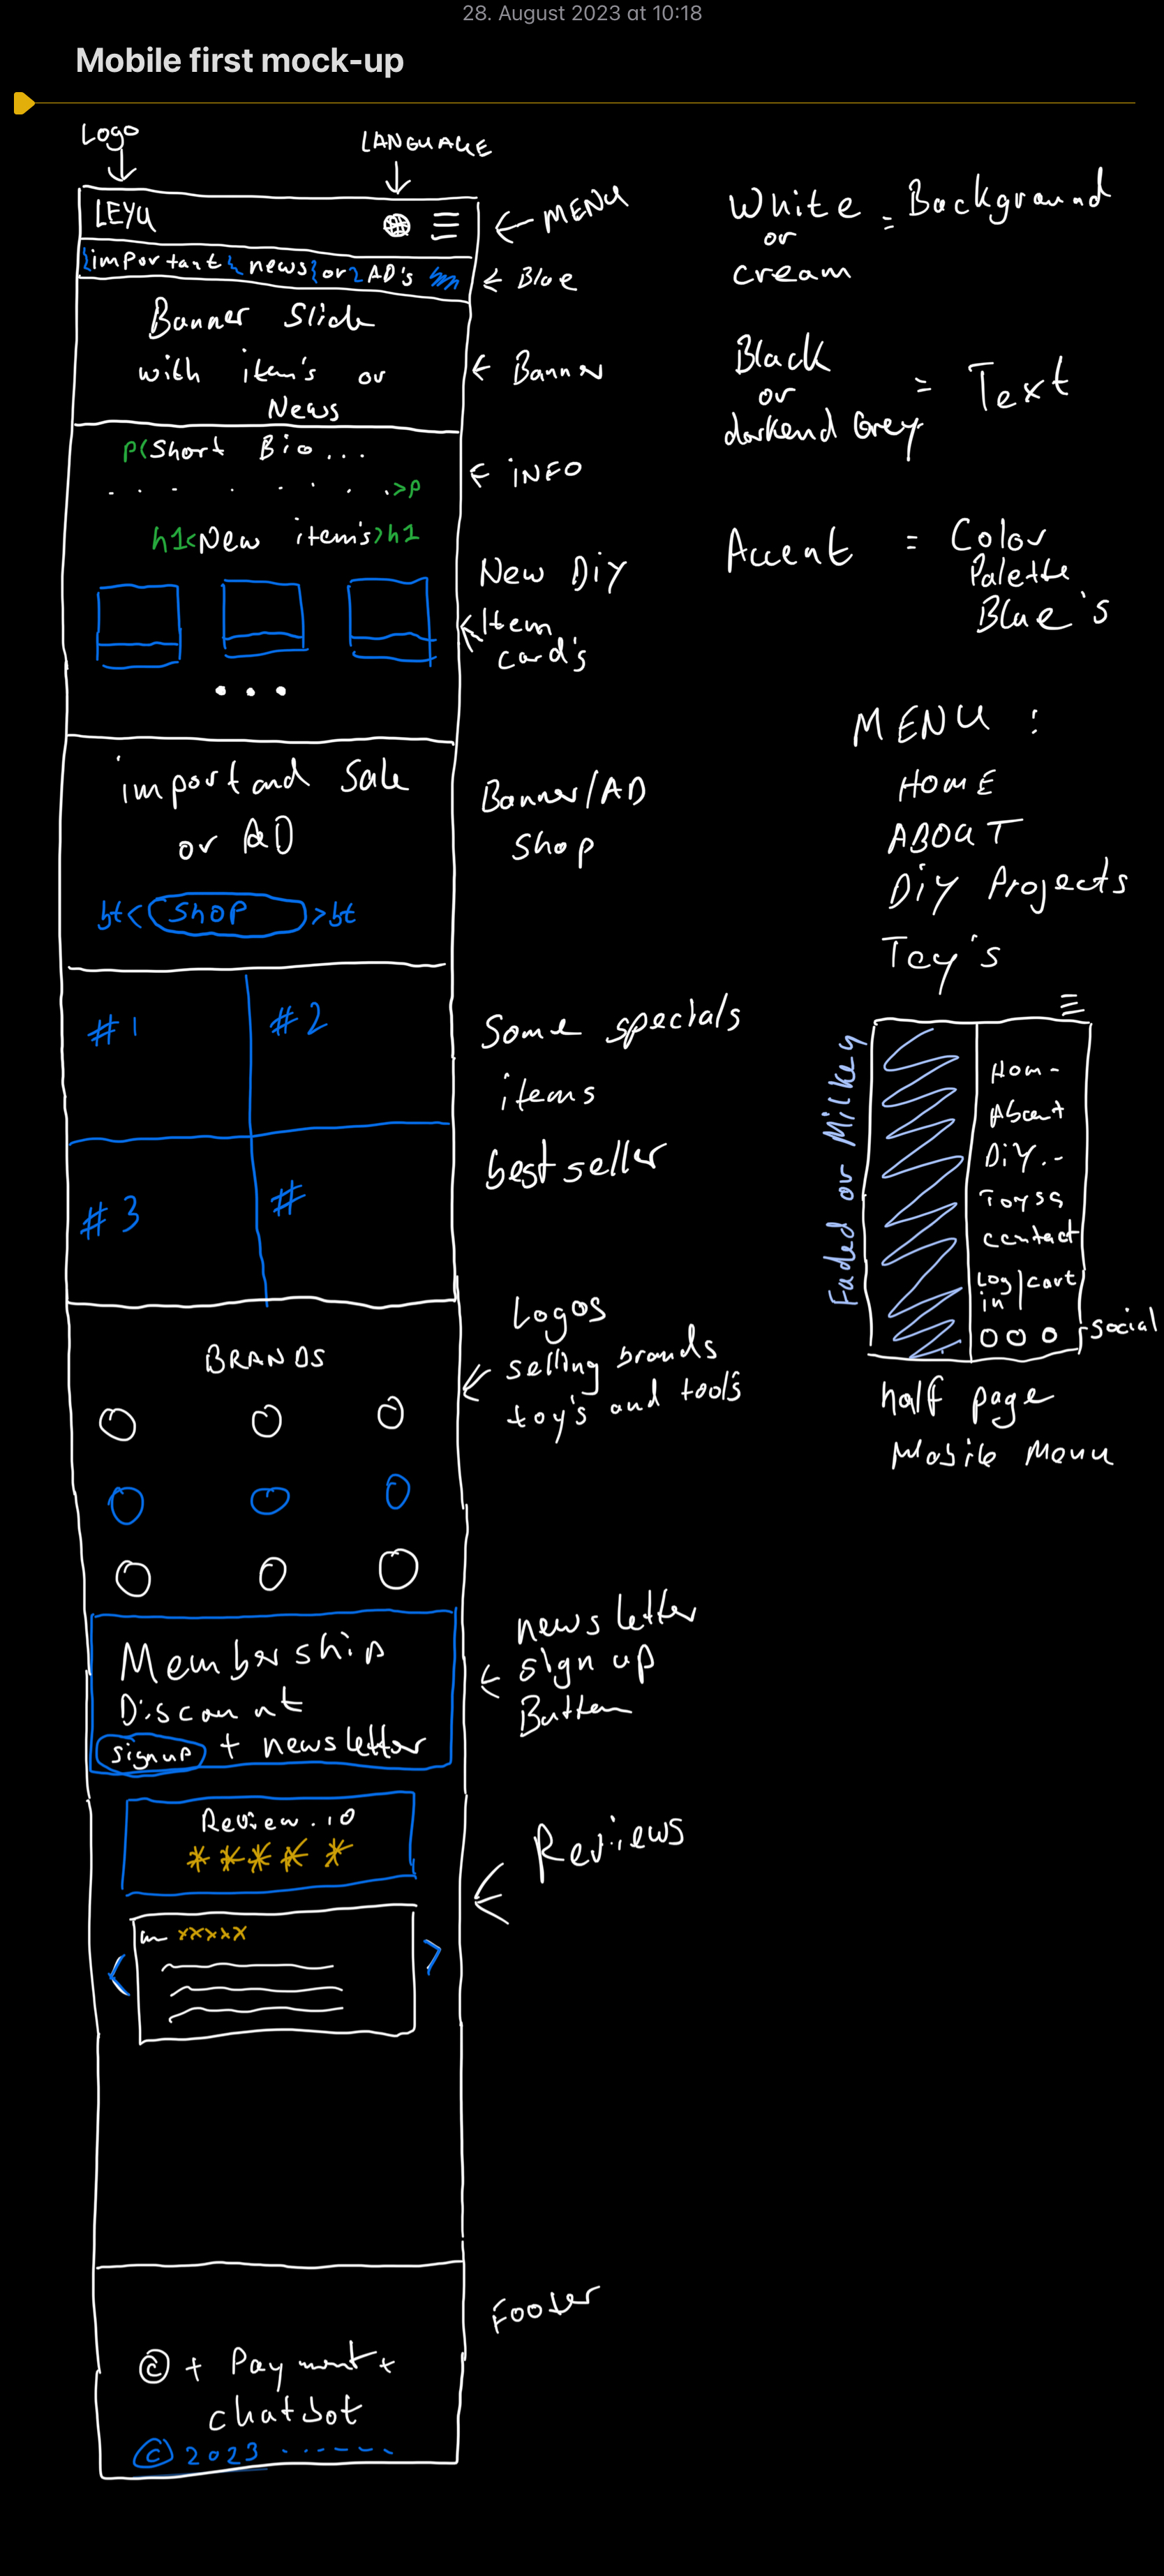 28. August 2023 at 10:18
Mobile first mock-up
Logo
LANGUAGE
LEYU
← MENU
{important { news{ or 2 AD's
← Blue
Banner Slide
with item's or
News
← Banner
p(Short Bio...
. . . . . . . .>p
← iNFO
h1<New item's>h1
New DiY
Item
card's
• • •
importand Sale
or AD
bt< Shop >bt
Banner/AD
Shop
#1
#2
#3
#
Some specials
items
best seller
BRANDS
Logos
selling brands
toy's and tool's
Membership
Discount
signup + newsletter
newsletter
sign up
Button
Review.io
*****
xxxxx
< >
Reviews
Footer
© + Payment +
chatbot
© 2023 ------
White = Background
or
cream
Black
or
darkend Grey
= Text
Accent = Color
Palette
Blue's
MENU :
HOME
ABOUT
DiY Projects
Toy's
Faded or Milkey
Hom-
About
DiY.-
Toyss
contact
Log|cart
in
social
half page
Mobile Menu